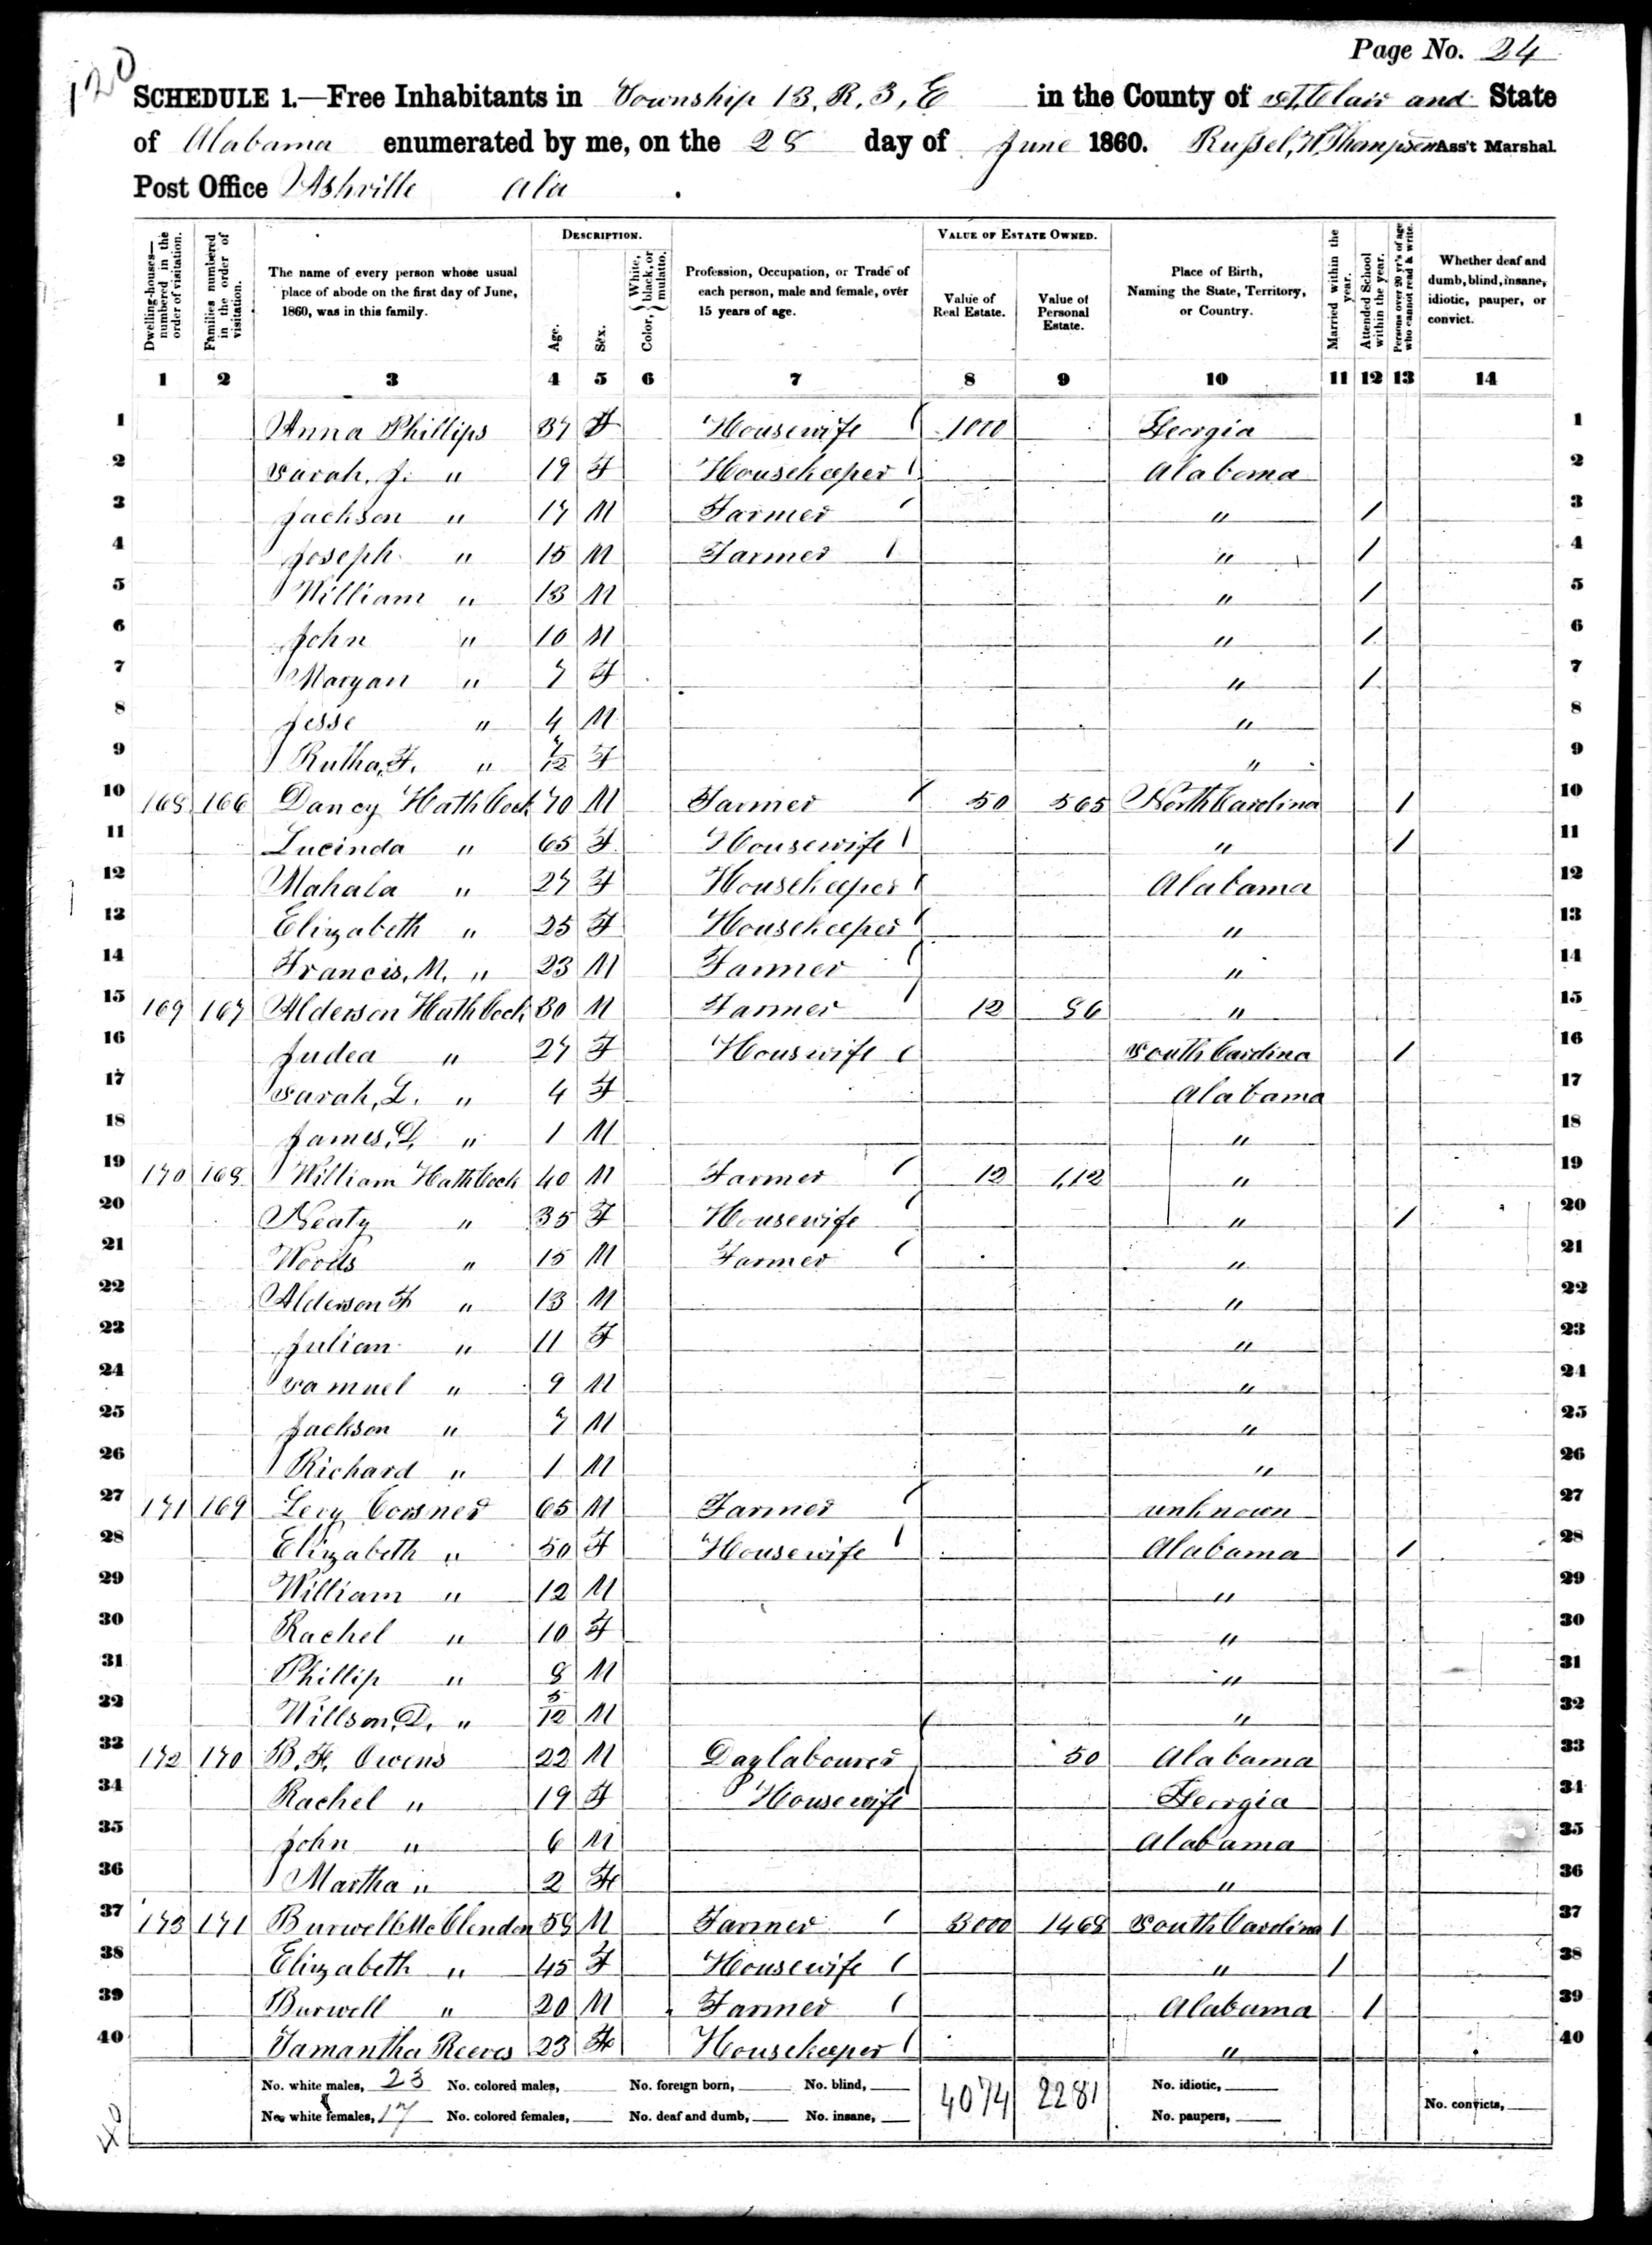 Page No. 24
120
SCHEDULE 1.—Free Inhabitants in Township 13, R, 3, E in the County of St, Clair and State
of Alabama enumerated by me, on the 28 day of June 1860. Russel, H, Thompson Ass't Marshal
Post Office Ashville Ala
Dwelling-houses—numbered in the order of visitation.
Families numbered in the order of visitation.
The name of every person whose usual place of abode on the first day of June, 1860, was in this family.
DESCRIPTION.
Age.
Sex.
Color, { White, black, or mulatto.
Profession, Occupation, or Trade of each person, male and female, over 15 years of age.
VALUE OF ESTATE OWNED.
Value of Real Estate.
Value of Personal Estate.
Place of Birth, Naming the State, Territory, or Country.
Married within the year.
Attended School within the year.
Persons over 20 yr's of age who cannot read & write.
Whether deaf and dumb, blind, insane, idiotic, pauper, or convict.
1 2 3 4 5 6 7 8 9 10 11 12 13 14
1 Anna Phillips 37 F Housewife 1000 Georgia 1
2 Sarah, J. " 19 F Housekeeper Alabama 2
3 Jackson " 17 M Farmer " / 3
4 Joseph " 15 M Farmer " / 4
5 William " 13 M " / 5
6 John " 10 M " / 6
7 Maryan " 7 F " / 7
8 Jesse " 4 M " 8
9 Rutha, F. " 7/12 F " 9
10 168 166 Dancy HathCock 70 M Farmer 50 565 North Carolina / 10
11 Lucinda " 65 F Housewife " / 11
12 Mahala " 27 F Housekeeper Alabama 12
13 Elizabeth " 25 F Housekeeper " 13
14 Francis, M. " 23 M Farmer " 14
15 169 167 Alderson HathCock 30 M Farmer 12 86 " 15
16 Judea " 27 F Houswife South Carolina / 16
17 Sarah, L. " 4 F Alabama 17
18 James, D, " 1 M " 18
19 170 168 William HathCock 40 M Farmer 12 112 " 19
20 Neaty " 35 F Housewife " / 20
21 Woods " 15 M Farmer " 21
22 Alderson F " 13 M " 22
23 Julian " 11 F " 23
24 Samuel " 9 M " 24
25 Jackson " 7 M " 25
26 Richard " 1 M " 26
27 171 169 Levy Cowsner 65 M Farmer unknown 27
28 Elizabeth " 50 F Housewife Alabama / 28
29 William " 12 M " 29
30 Rachel " 10 F " 30
31 Phillip " 8 M " 31
32 Willson, D, " 5/12 M " 32
33 172 170 B. F. Owens 22 M Day labourer 50 Alabama 33
34 Rachel " 19 F Housewife Georgia 34
35 John " 6 M Alabama 35
36 Martha " 2 F " 36
37 173 171 Burwell McClendon 58 M Farmer 3000 1468 South Carolina / 37
38 Elizabeth " 45 F Housewife " / 38
39 Burwell " 20 M Farmer Alabama / 39
40 Samantha Reeves 23 F Housekeeper " 40
No. white males, 23 No. colored males, No. foreign born, No. blind, 4074 2281 No. idiotic,
No. white females, 17 No. colored females, No. deaf and dumb, No. insane, No. paupers, No. convicts,
40